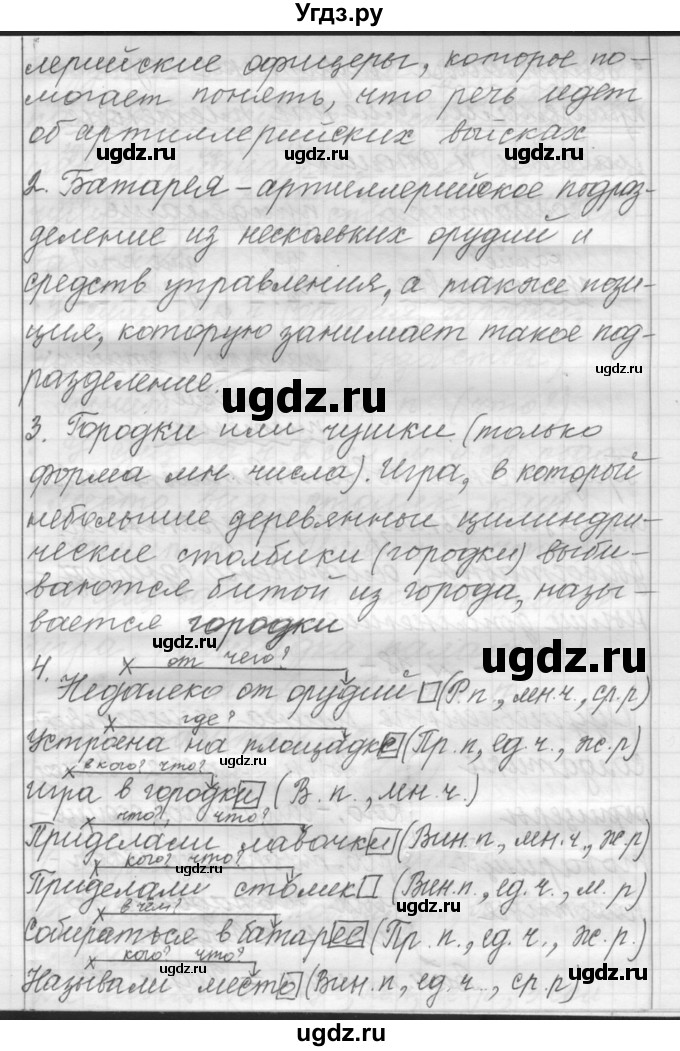 Угдз.ру
лерийские офицеры, которое по-
могает понять, что речь идет
об артиллерийских войсках
ugdz.ru ugdz.ru ugdz.ru
2. Батарея – артиллерийское подраз-
деление из нескольких орудий и
средств управления, а также пози-
ugdz.ru
ция, которую занимает такое под-
ugdz.ru
разделение.
ugdz.ru
3. Городки или чушки (только
форма мн. числа). Игра, в который
небольшие деревянные цилиндри-
ческие столбики (городки) выби-
ваются битой из города, назы-
ugdz.ru
вается городки
ugdz.ru
4. х от чего?
ugdz.ru
Недалеко от орудий (Р.п., мн.ч., ср.р)
х где?
Устроена на площадке (Пр.п, ед.ч., ж.р)
ugdz.ru
х в кого? что?
игра в городки (В.п., мн.ч.)
х что?, что?
Приделали лавочки (Вин.п., мн.ч., ж.р)
ugdz.ru
х кого? что?
ugdz.ru
Приделали столик (Вин.п., ед.ч., м.р)
ugdz.ru
х в чём?
Собираться в батарее (Пр.п., ед.ч., ж.р.)
х кого? что?
ugdz.ru
Называли место (Вин.п, ед.ч., ср.р)
ugdz.ru
ugdz.ru